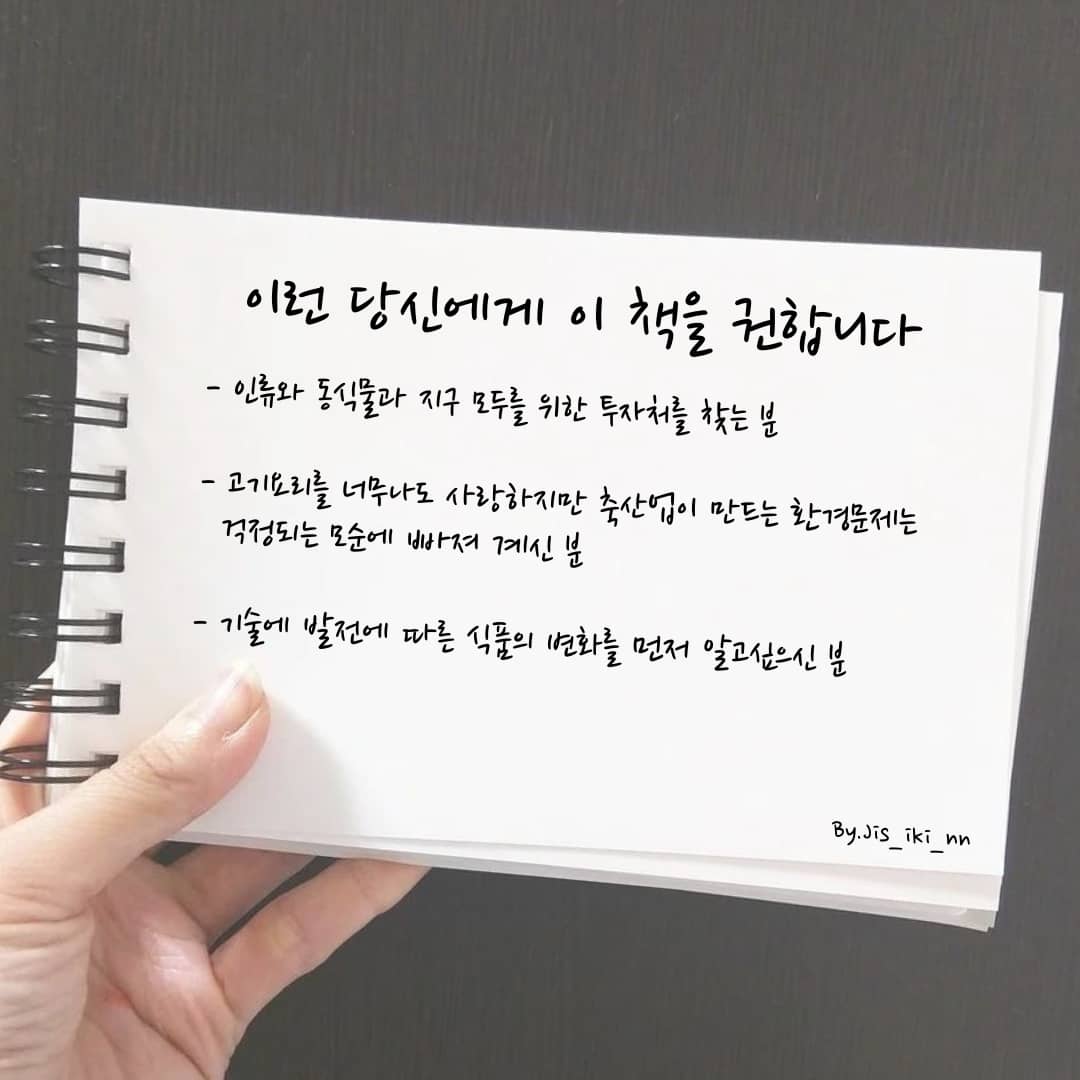 이런 당신에게 이 책을 권합니다
- 인류와 동식물과 지구 모두를 위한 투자처를 찾는 분
- 고기요리를 너무나도 사랑하지만 축산업이 만드는 환경문제는
걱정되는 모순에 빠져 계신 분
- 기술에 발전에 따른 식품의 변화를 먼저 알고싶으신 분
By.Jis_iki_nn